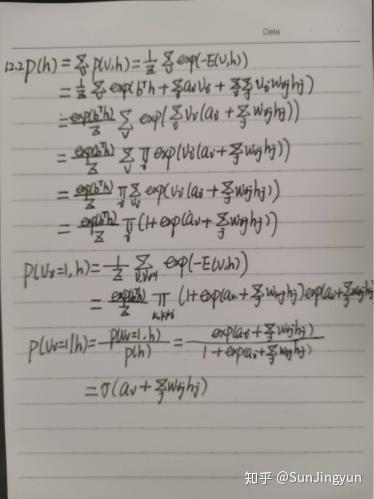 Date
12.2 p(h) = ∑_v p(v,h) = 1/Z ∑_v exp(-E(v,h))
= 1/Z ∑_v exp(bᵀh + ∑_i a_i v_i + ∑_i ∑_j v_i w_ij h_j)
= exp(bᵀh)/Z ∑_v exp(∑_i v_i(a_i + ∑_j w_ij h_j))
= exp(bᵀh)/Z ∑_v ∏_i exp(v_i(a_i + ∑_j w_ij h_j))
= exp(bᵀh)/Z ∏_i ∑_{v_i} exp(v_i(a_i + ∑_j w_ij h_j))
= exp(bᵀh)/Z ∏_i (1 + exp(a_i + ∑_j w_ij h_j))
p(v_i=1, h) = 1/Z ∑_{v, v_i=1} exp(-E(v,h))
= exp(bᵀh)/Z ∏_{k,k≠i} (1 + exp(a_k + ∑_j w_kj h_j) exp(a_i + ∑_j w_ij h_j)
p(v_i=1|h) = p(v_i=1, h)/p(h) = exp(a_i + ∑_j w_ij h_j)/1 + exp(a_i + ∑_j w_ij h_j)
= σ(a_i + ∑_j w_ij h_j)
知乎 @SunJingyun